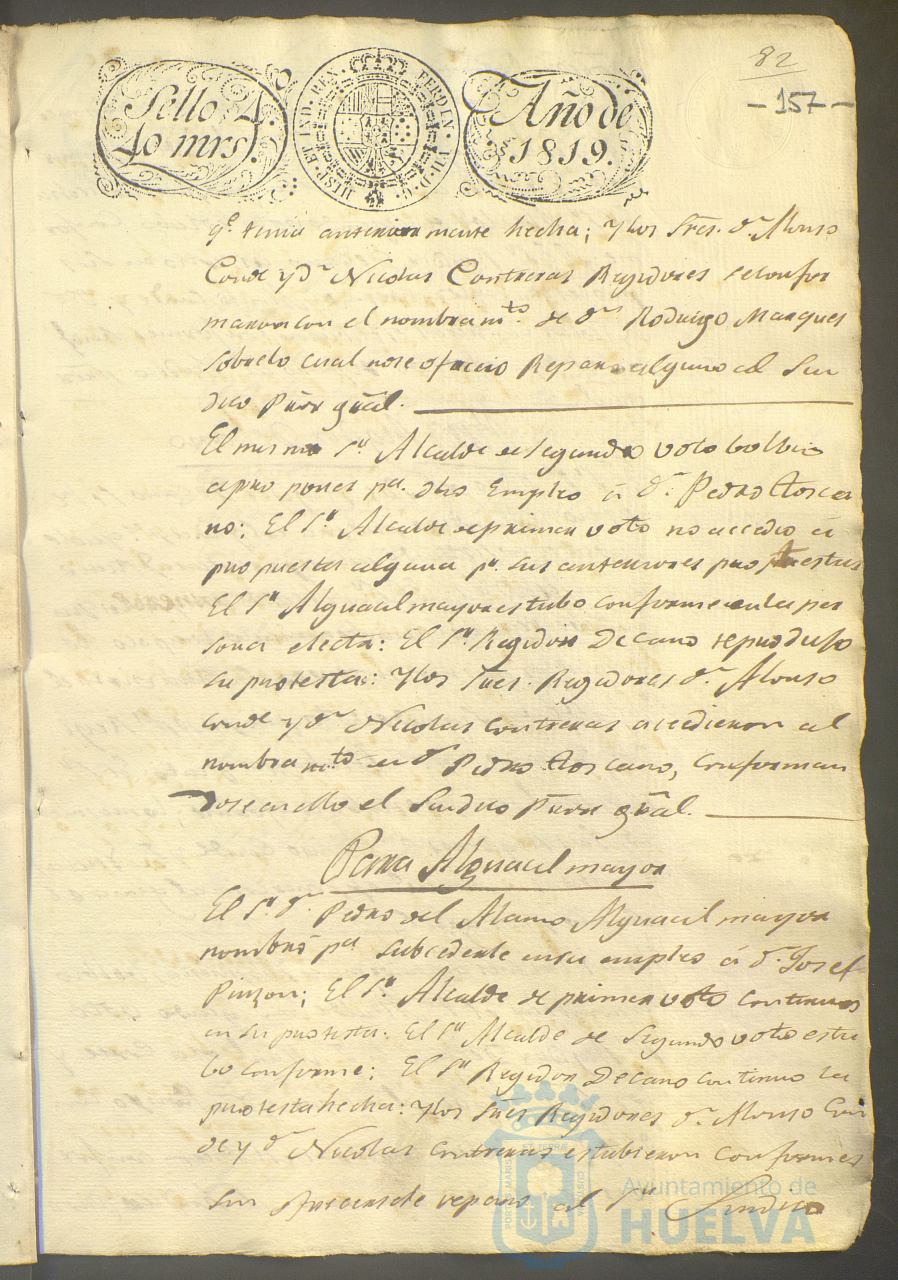 82
- 157 -
Sello 4.
40 mrs.
HISP. ET IND. REX. FERD. VII. D. G.
Año de
1819.
qe. tenia anteriormente hecha; y los Sres. Dn. Alonso
Conde y Dn. Nicolas Contreras Regidores se confor
maron con el nombramto. de Dn. Rodrigo Marques
sobre lo cual no se ofrecio Reparo alguno al Sin
dico gral.
El mismo Sr. Alcalde de Segundo voto bolbio
a pro poner pa. dho Empleo á Dn. Pedro Tosca
no; El Sr. Alcalde de primer voto no accedio á
pro puesta alguna pr. sus anteriores protestas
El Sr. Alguacil mayor estubo conforme en la per
sona electa: El Sr. Regidor Decano reprodujo
su protesta: y los Sres. Regidores Dn. Alonso
Conde y Dn. Nicolas Contreras accedieron al
nombramto. en Dn. Pedro Toscano, conforman
dose en ello el Sindico gral.
Para Alguacil mayor
El Sr. Dn. Pedro del Alamo Alguacil mayor
nombró pa. subcederle en su empleo á Dn. Josef
Pinzon; El Sr. Alcalde de primer voto continuo
en su protesta: El Sr. Alcalde de Segundo voto estu
bo conforme; El Sr. Regidor Decano continuo la
protesta hecha: y los Sres. Regidores Dn. Alonso Con
de y Dn. Nicolas Contreras estubieron conformes
sin ofrecersele reparo al Sr. Sindico
PORTUS MARIS ET TERRAE CUSTODIA
Ayuntamiento de
HUELVA